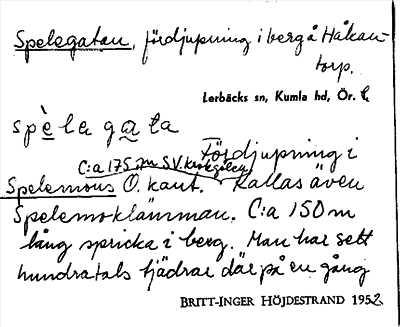 Spelegatan, fördjupning i berg å Håkan-
torp.
Lerbäcks sn, Kumla hd, Ör. l.
spèlega̲ta
Fördjupning i
C:a 175 m SV.
Spelemöns O. kant. Kallas även
Spelemoklämman. C:a 150 m
lång spricka i berg. Man har sett
hundratals fjädrar där på en gång
BRITT-INGER HÖJDESTRAND 1952